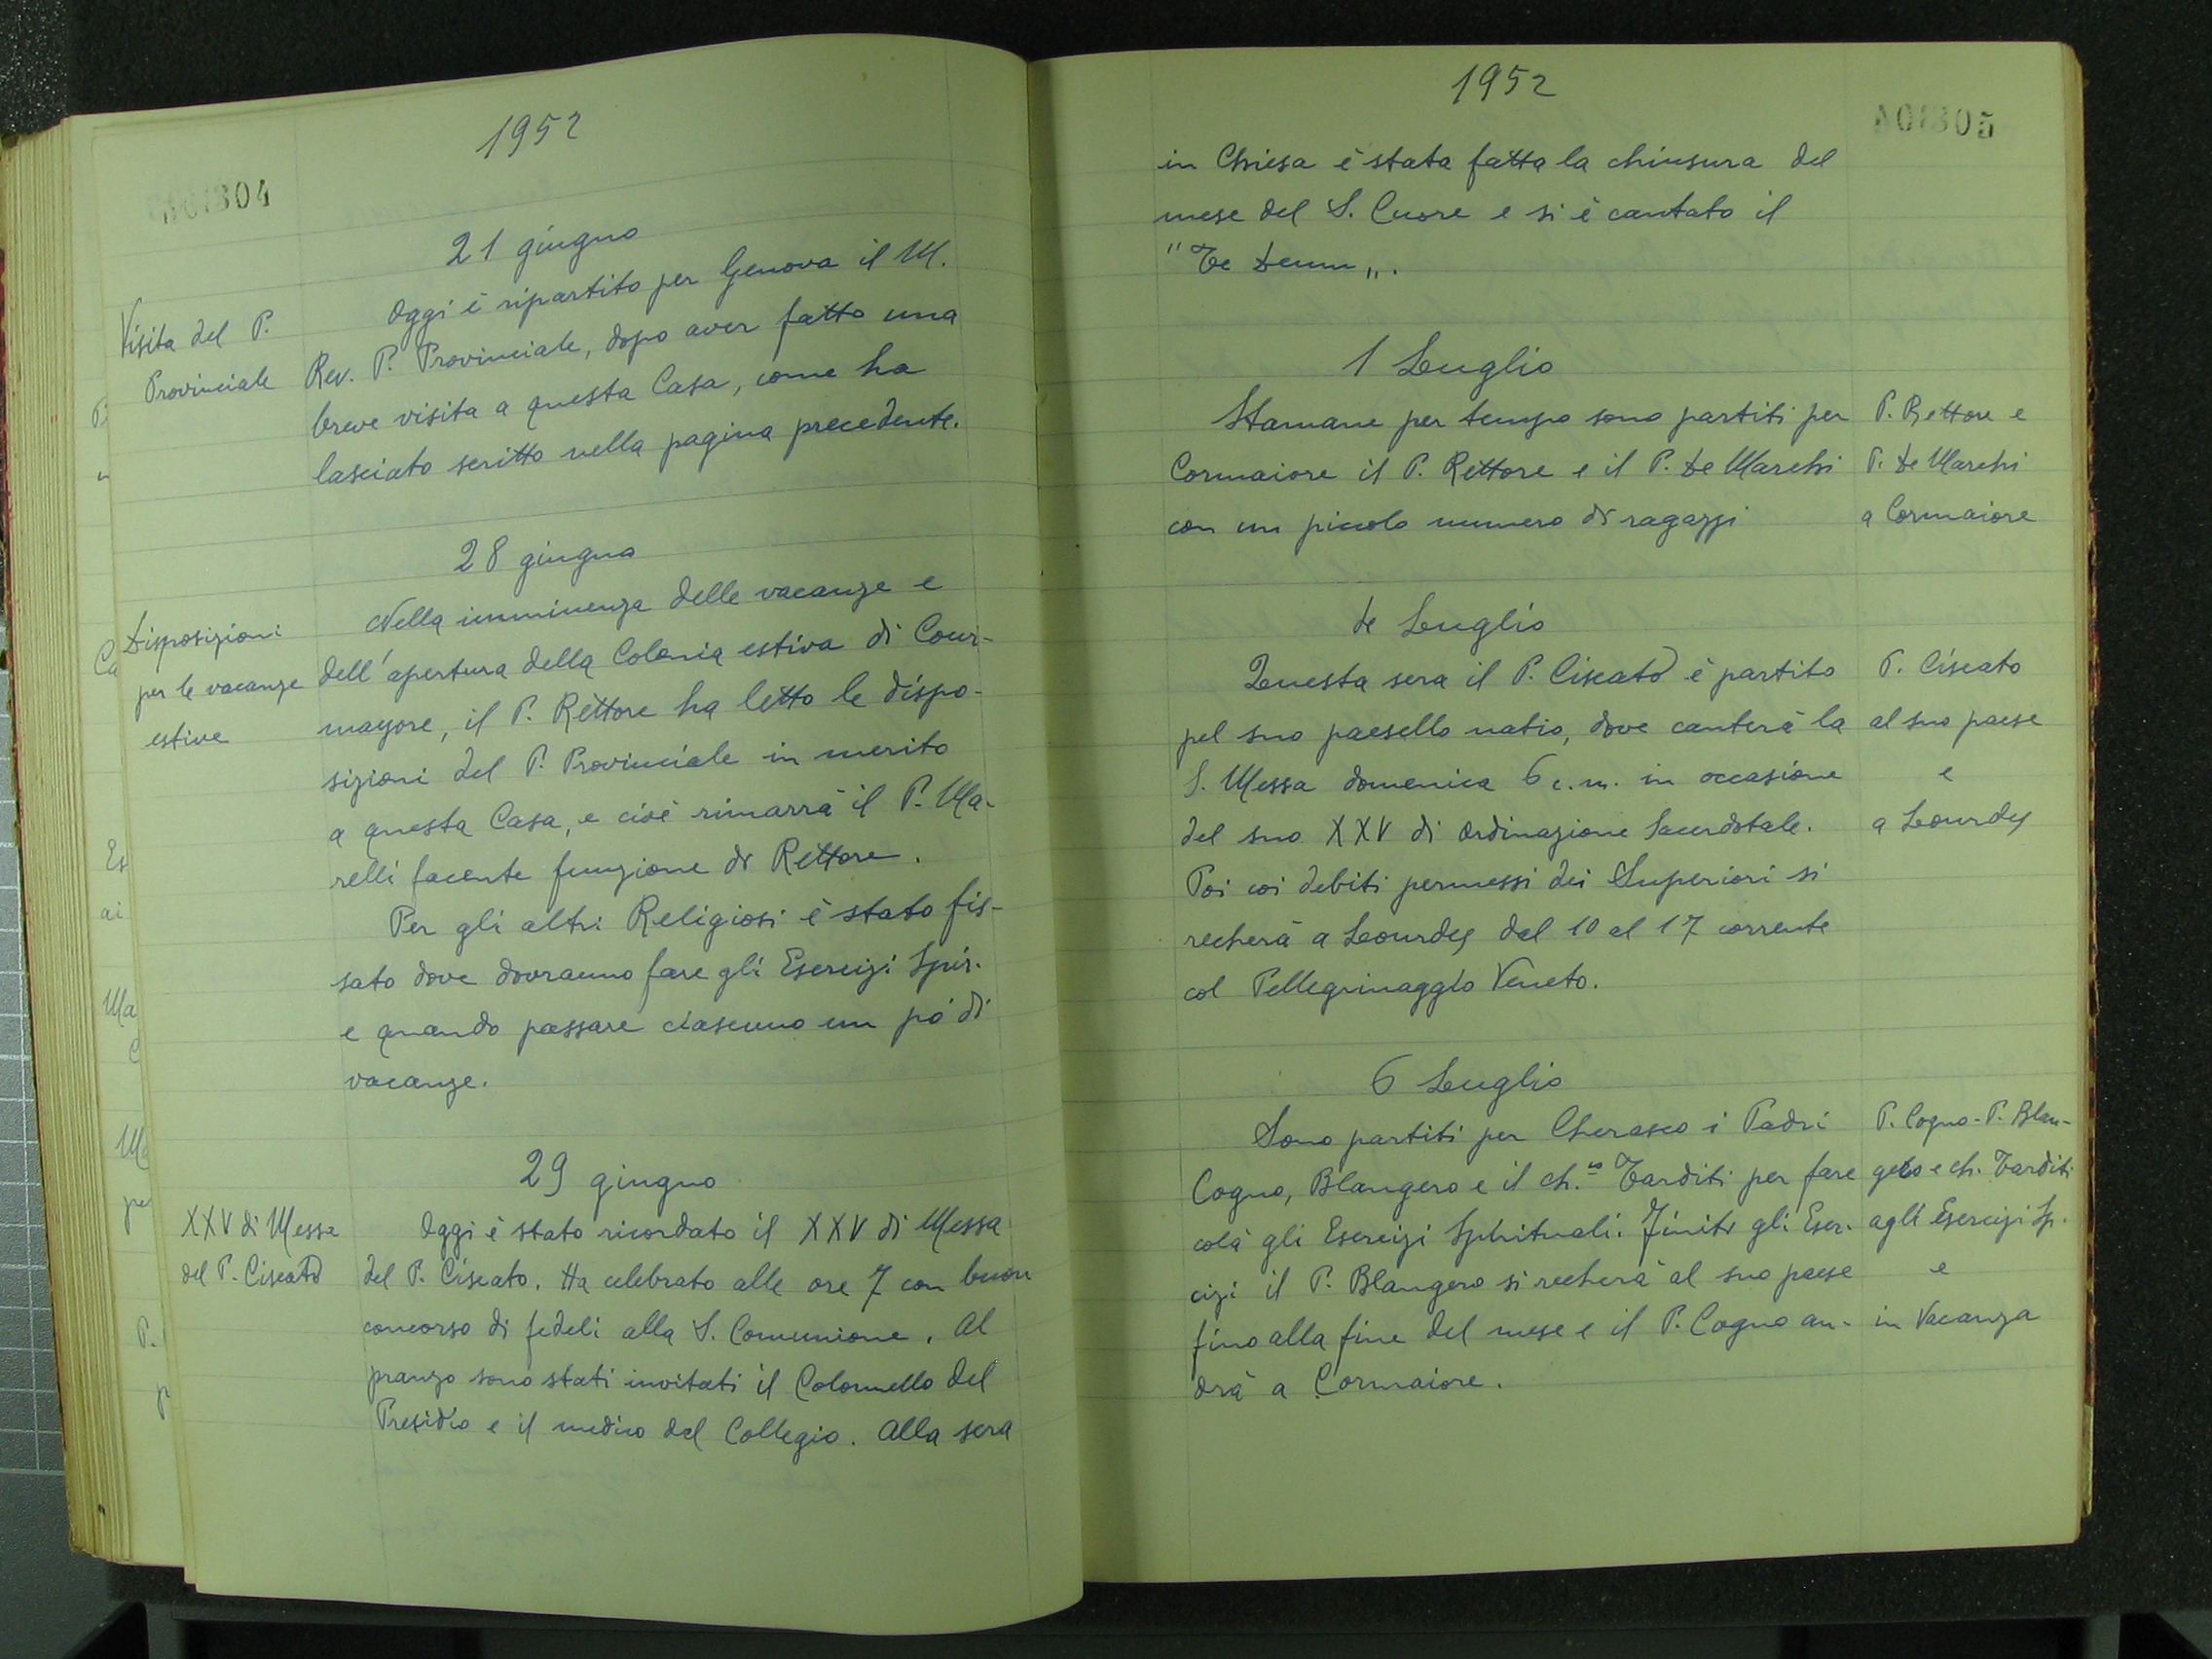 1952
21 giugno
Visita del P.
Provinciale
Oggi è ripartito per Genova il M.
Rev. P. Provinciale, dopo aver fatto una
breve visita a questa Casa, come ha
lasciato scritto nella pagina precedente.
28 giugno
Disposizioni
per le vacanze
estive
Nella imminenza delle vacanze e
dell'apertura della Colonia estiva di Cour-
mayore, il P. Rettore ha letto le dispo-
sizioni del P. Provinciale in merito
a questa Casa, e cioè rimarrà il P. Ma-
relli facente funzione di Rettore.
Per gli altri Religiosi è stato fis-
sato dove dovranno fare gli Esercizi Spir.
e quando passare ciascuno un pò di
vacanze.
29 giugno
XXV di Messa
del P. Ciscato
Oggi è stato ricordato il XXV di Messa
del P. Ciscato. Ha celebrato alle ore 7 con buon
concorso di fedeli alla S. Comunione. Al
pranzo sono stati invitati il Colonnello del
Presidio e il medico del Collegio. Alla sera
1952
in Chiesa è stata fatta la chiusura del
mese del S. Cuore e si è cantato il
"Te Deum„.
1 Luglio
Stamane per tempo sono partiti per
Cormaiore il P. Rettore e il P. De Marchi
con un piccolo numero di ragazzi
P. Rettore e
P. De Marchi
a Cormaiore
Luglio
Questa sera il P. Ciscato è partito
pel suo paesello natio, dove canterà la
S. Messa domenica 6 c.m. in occasione
del suo XXV di Ordinazione Sacerdotale.
Poi coi debiti permessi dei Superiori si
recherà a Lourdes dal 10 al 17 corrente
col Pellegrinaggio Veneto.
P. Ciscato
al suo paese
e
a Lourdes
6 Luglio
Sono partiti per Cherasco i Padri
Cogno, Blangero e il ch.co Tarditi per fare
colà gli Esercizi Spirituali. Finiti gli Eser-
cizi il P. Blangero si recherà al suo paese
fino alla fine del mese e il P. Cogno an-
drà a Cormaiore.
P. Cogno - P. Blan-
gero e ch. Tarditi
agli Esercizi Sp.
e
in Vacanza